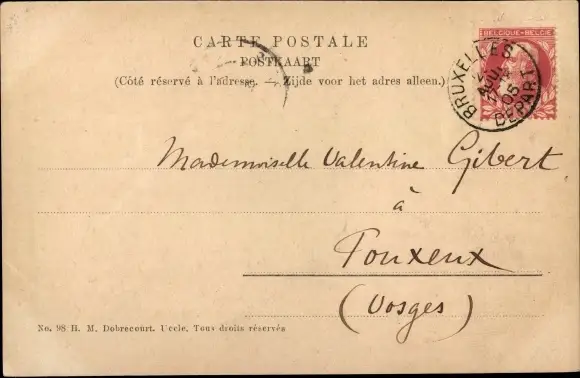 CARTE POSTALE
POSTKAART
(Côté réservé à l'adresse. — Zijde voor het adres alleen.)
BELGIQUE-BELGIË
BRUXELLES
AOU.
05
DEPART
Mademoiselle Valentine Gibert
à
Pouxeux
(Vosges)
No. 98 H. M. Dobrecourt. Uccle. Tous droits réservés